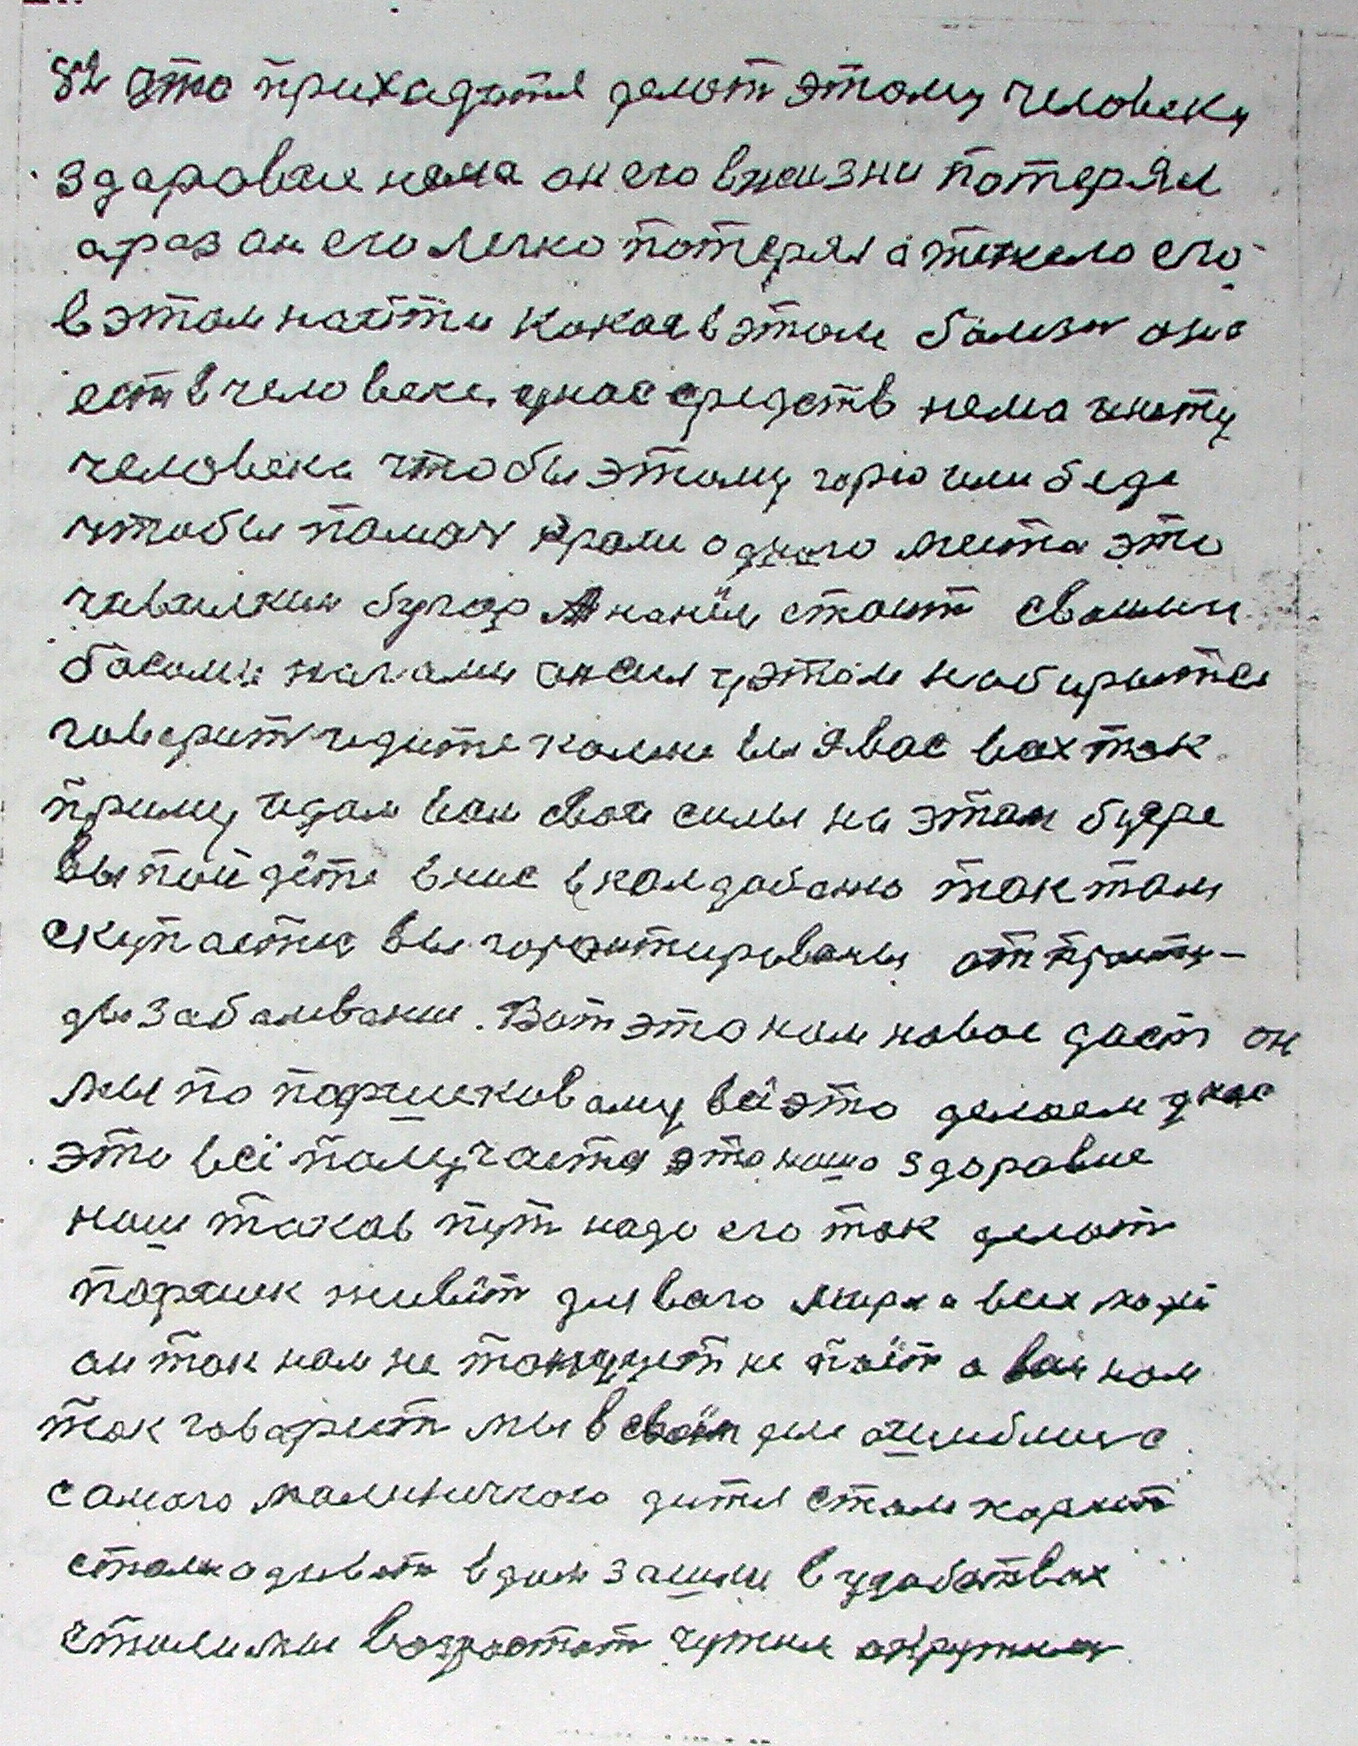 82 что прихадится делат этому человеку
здаровие нема он его в жизни потерял
а раз он его легко потерял а тежело его
в этом найтти какая в этом болизн она
ест в человеке. у нас средств нема
человека чтобы этому горю или беде
чтобы памоч кроми одного места это
чивилкин бугор стоит своими
босыми ногами он сил у этом набирается
говорит идите ко мне вы я вас вох так
приму и дам вам свои силы на этом бугре
вы пойдёте вниз в колдобину так там
скупаетис вы гарантированы от просту-
ды заболивание. Вот это нам новое даст он
мы по паршековому всё это делаем у нас
это всё палучается это наше здоравие
наш таков пут надо его так делат
паршек живёт для всего мира и всех людей
он так нам не танцует не поёт а вам нам
так говарит мы в своём деле ашиблис с
самого малиничкого дитя стали кормит
стали одиват в дом зашли в удобствах
стали мы возростат чужим окружили